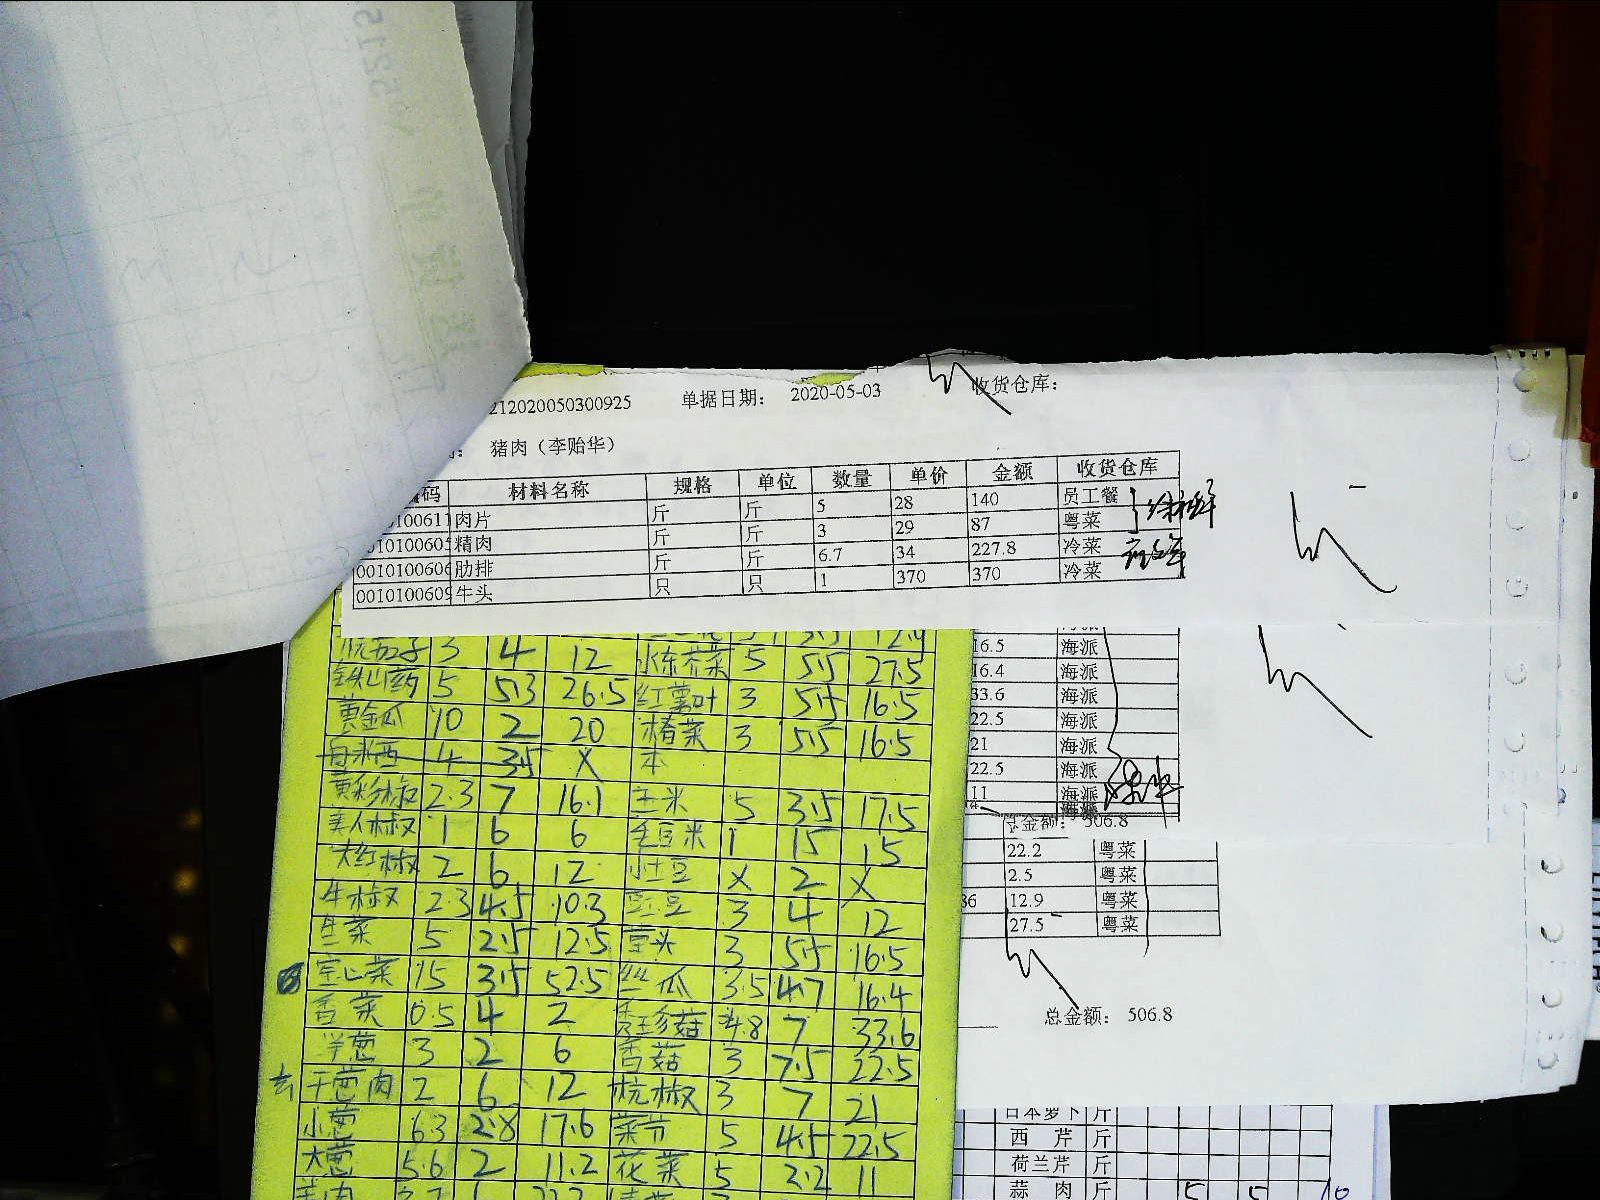 212020050300925 单据日期： 2020-05-03 收货仓库：
猪肉（李贻华）
码 材料名称 规格 单位 数量 单价 金额 收货仓库
0100611 肉片 斤 斤 5 28 140 员工餐
010100605 精肉 斤 斤 3 29 87 粤菜
0010100606 肋排 斤 斤 6.7 34 227.8 冷菜
0010100609 牛头 只 只 1 370 370 冷菜
茄子 3 4 12 水东芥菜 5 5.5 27.5
铁山药 5 5.3 26.5 红薯叶 3 5.5 16.5
黄金瓜 10 2 20 菜 3 5.5 16.5
白米西 4 3.5 X 本
黄彩椒 2.3 7 16.1 玉米 5 3.5 17.5
美人椒 1 6 6 毛豆米 1 15 15
大红椒 2 6 12 小土豆 X 2 X
牛椒 2.3 4.5 10.3 豇豆 3 4 12
生菜 5 2.5 12.5 茼头 3 5.5 16.5
宝山菜 15 3.5 52.5 丝瓜 3.5 4.7 16.4
香菜 0.5 4 2 秀珍菇 4.8 7 33.6
洋葱 3 2 6 香菇 3 7.5 22.5
去 干葱肉 2 6 12 杭椒 3 7 21
小葱 6.3 2.8 17.6 菜节 5 4.5 22.5
大葱 5.6 2 11.2 花菜 5 2.2 11
16.5 海派
16.4 海派
33.6 海派
22.5 海派
21 海派
22.5 海派
11 海派
总金额： 506.8
22.2 粤菜
2.5 粤菜
36 12.9 粤菜
27.5 粤菜
总金额： 506.8
日本萝卜 斤
西 芹 斤
荷兰芹 斤
蒜 肉 斤 5 5 10